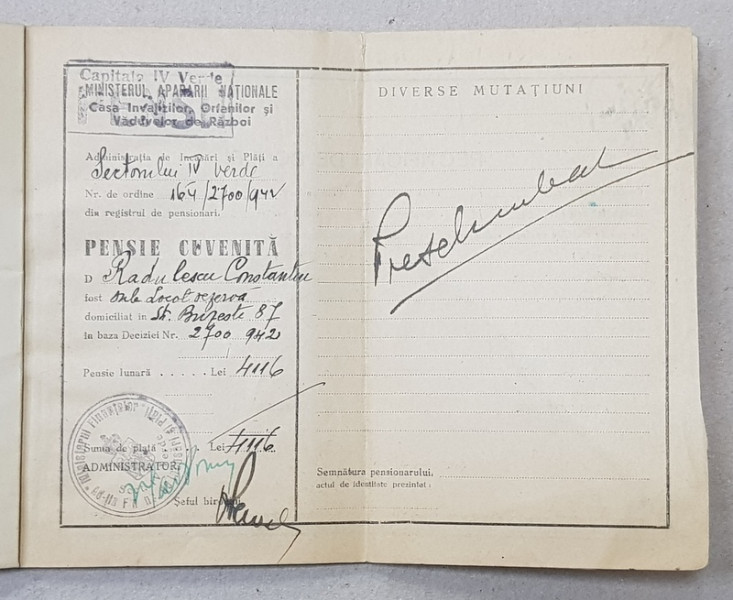 Capitala IV Verde
MINISTERUL APARARII NAȚIONALE
Casa Invalizilor, Orfanilor și
Văduvelor de Război
Administrația de Incasări și Plăți a
Sectorului IV Verde
Nr. de ordine 164/2700/942
din registrul de pensionari.
PENSIE CUVENITĂ
D Radulescu Constantin
fost sublocot rezerva
domiciliat in St. Buzesti 87
in baza Deciziei Nr. 2700 942
Pensie lunară . . . . . Lei 4116
Suma de plată . . . Lei 4116
ADMINISTRATOR,
Șeful birou
DIVERSE MUTAȚIUNI
Preschimbat
Semnătura pensionarului.
actul de identitate prezintat: